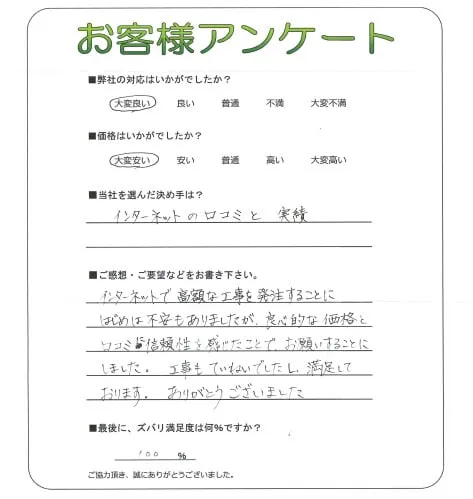 お客様アンケート
■弊社の対応はいかがでしたか？
大変良い 良い 普通 不満 大変不満
■価格はいかがでしたか？
大変安い 安い 普通 高い 大変高い
■当社を選んだ決め手は？
インターネットの口コミと 実績
■ご感想・ご要望などをお書き下さい。
インターネットで高額な工事を発注することに
はじめは不安もありましたが、良心的な価格と
口コミに信頼性を感じたことで、お願いすることに
しました。 工事もていねいでしたし、満足して
おります。 ありがとうございました
■最後に、ズバリ満足度は何%ですか？
100 %
ご協力頂き、誠にありがとうございました。